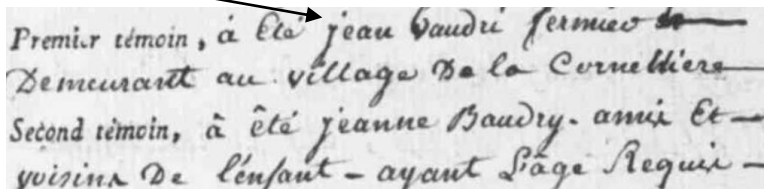 Premier témoin, à été jean baudri fermier
Demeurant au village De la Cornelliere
Second témoin, à êté jeanne Baudry. amix Et
voisins De l'enfant - ayant L'âge Requis -